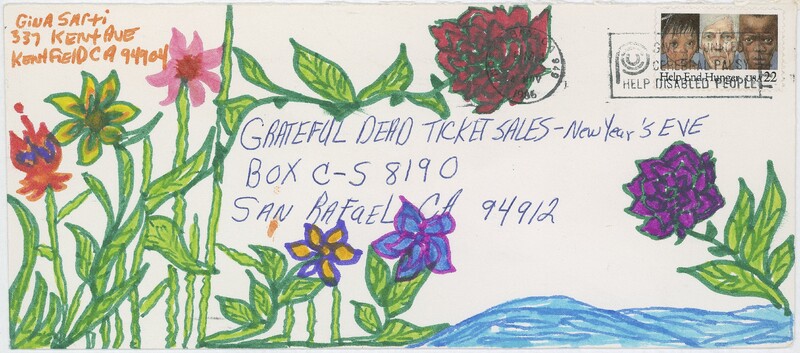 Gina Sarti
337 Kent Ave
Kentfield CA 94904
GRATEFUL DEAD TICKET SALES - New Year's EVE
BOX C-S 8190
SAN RAFAEL CA 94912
1986
949
UNITED
CEREBRAL PALSY
HELP DISABLED PEOPLE
Help End Hunger USA 22